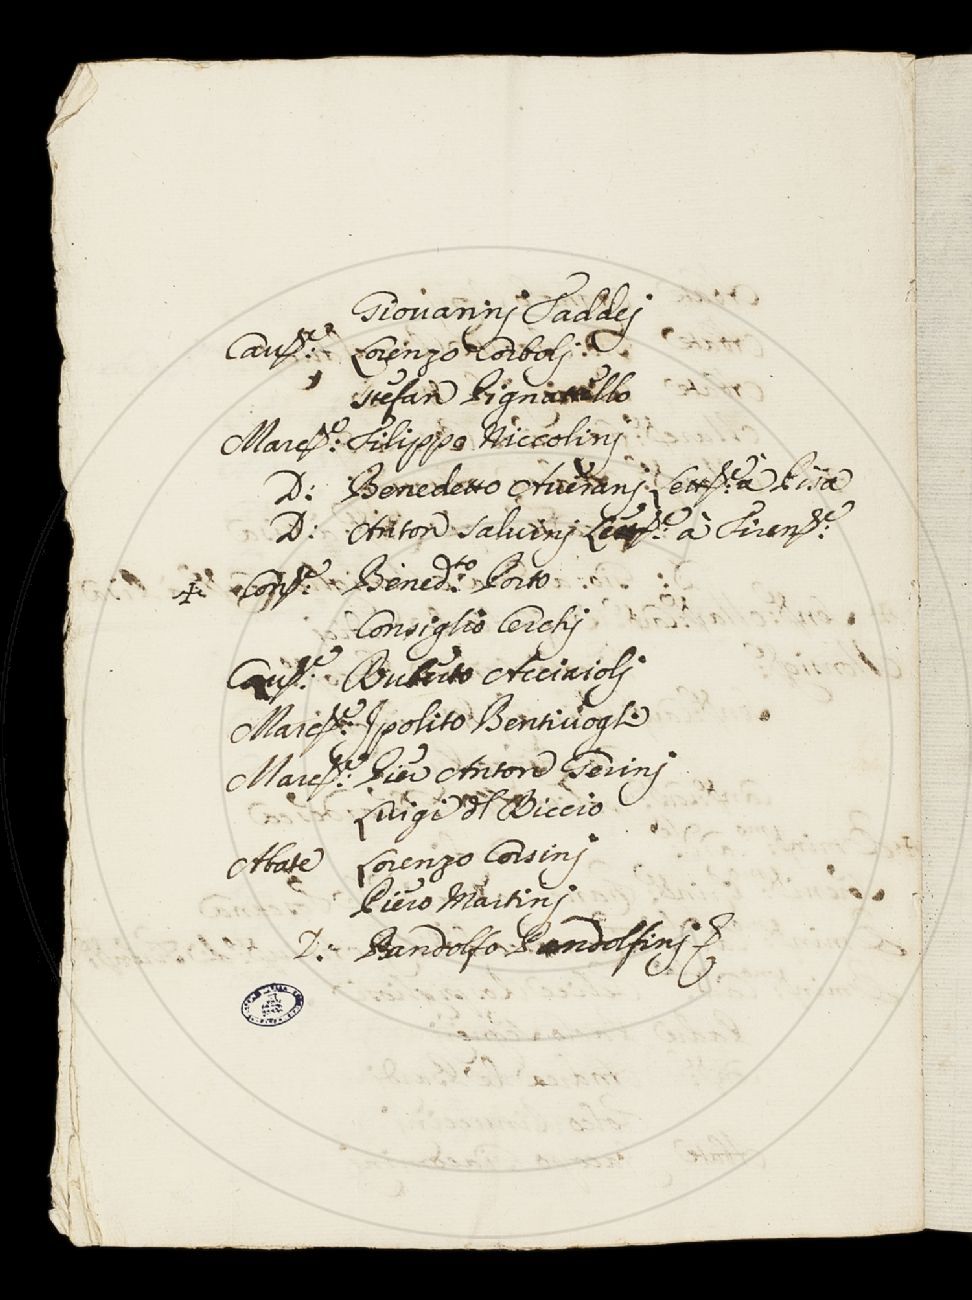 Giovannj Taddej
Cau.re Lorenzo Corbolj
Stefan Pignattello
March.e: Filippo Niccolinj
D: Benedetto Aueranj Lett.re à Pisa
D: Anton Saluinj Lett.re à Firenz.e
✝ Cons.e: Bened.to: Porto
Consiglio Cerchj
Cau.re: Acciaiolj
March.e: Ipolito Bentiuogli
March.e: Pier Anton Gerinj
Luigi del Riccio
Abate Lorenzo Corsinj
Piero Martinj
D: Pandolfo Pandolfinj